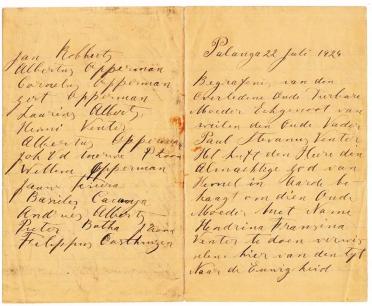 Jan Robberts
Albertus Opperman
Cornelus Opperman
gert Opperman
Laurins Alberts
Henni Venter
Albertus Opperman
Joh Ed
Willem Opperman
Basilis
Andries Alberts
Pieter Botha
Filippus Oosthuizen
Palanga 22 Juli 1926
Begrafenis van den
Overledene Oude Eerbare
Moeder Echgenoot van
weilen den Oude Vader
Paul Stevanus Venter
Het heft den Heere den
Almachtige god van
Hemel en Aarde be
haagt om dien Oude
Moeder Met Name
Hendrina Fransina
Venter te doen verwis
selen hier van den tyt
Naar de Eeuwigheid